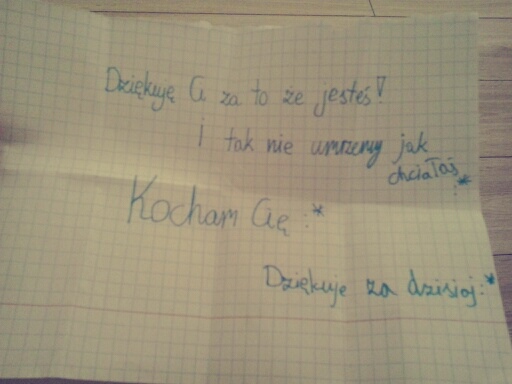 Dziękuję Ci za to że jesteś!
I tak nie umrzemy jak
chciałaś :*
Kocham Cię :*
Dziękuje za dzisiaj :*